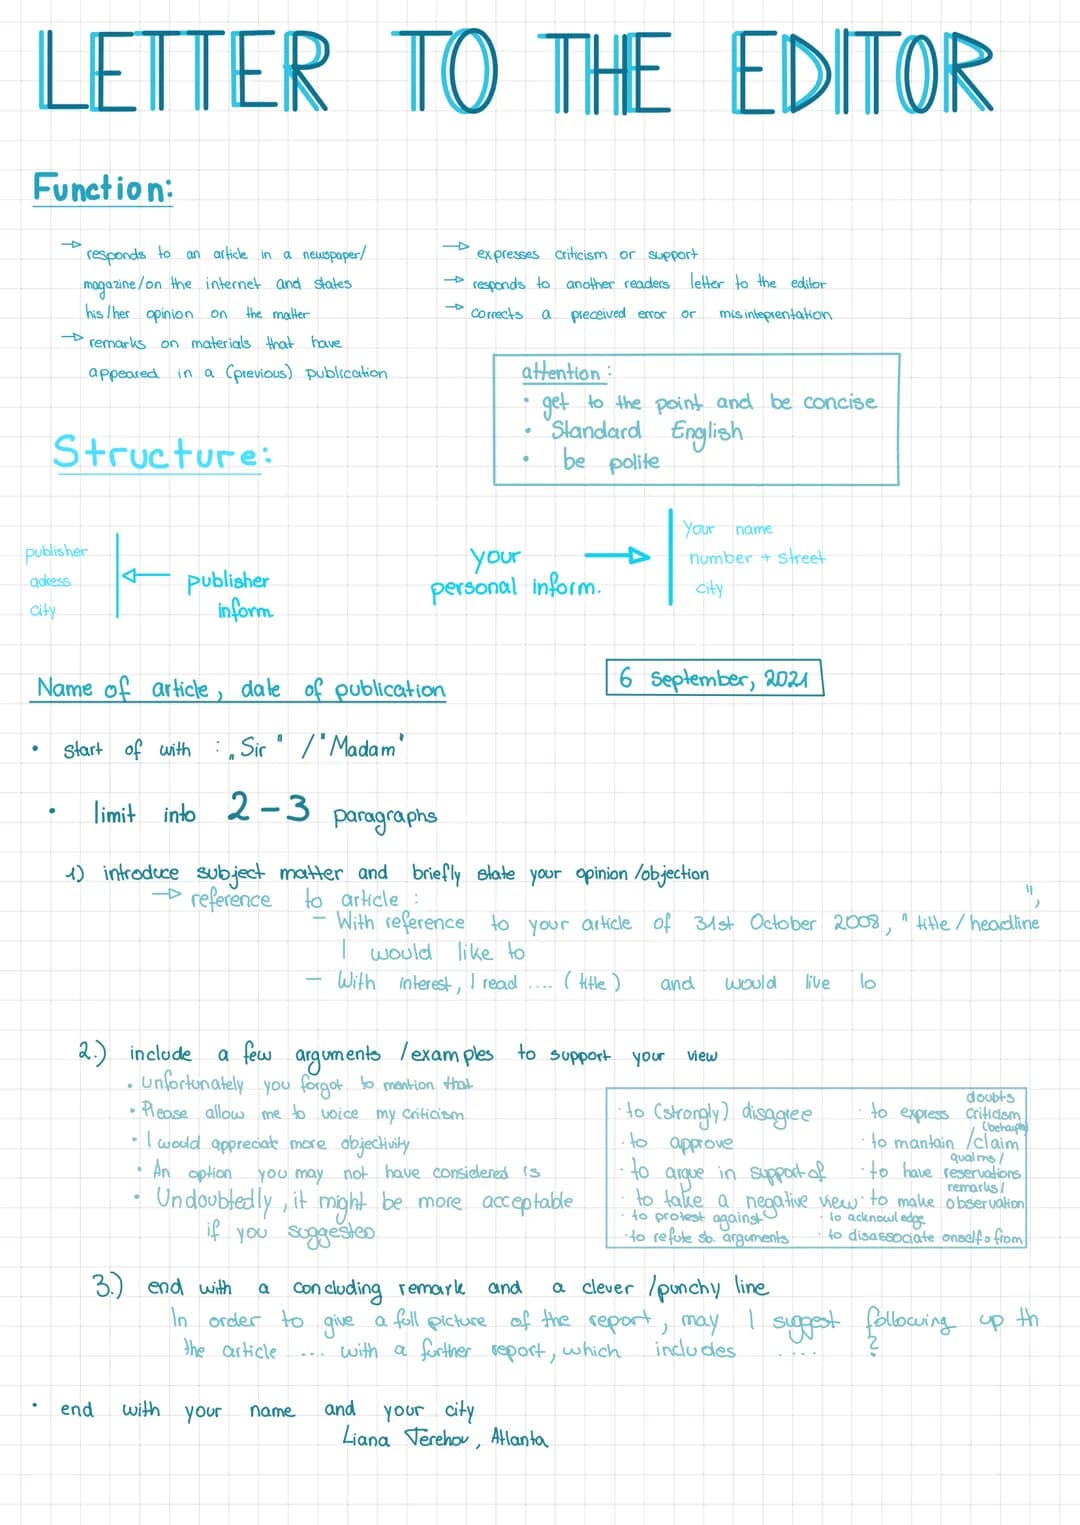 LETTER TO THE EDITOR
Function:
→ responds to an article in a newspaper/
magazine/on the internet and states
his/her opinion on the matter
→ remarks on materials that have
appeared in a (previous) publication
→ expresses criticism or support
→ responds to another readers letter to the editor
→ corrects a preceived error or misinteprentation
attention:
• get to the point and be concise
• Standard English
• be polite
Structure:
publisher
adress
city
← publisher
inform.
your →
personal inform.
Your name
number + street
city
Name of article, date of publication
6 September, 2021
• start of with : „Sir" / "Madam"
• limit into 2-3 paragraphs
1) introduce subject matter and briefly state your opinion /objection
→ reference to article :
– With reference to your article of 31st October 2008, " title / headline ",
I would like to
– With interest, I read .... ( title ) and would live to
2.) include a few arguments /examples to support your view
• Unfortunately you forgot to mention that
• Please allow me to voice my criticism
• I would appreciate more objectivity
• An option you may not have considered is
• Undoubtedly, it might be more acceptable
if you suggested
· to (strongly) disagree
· to approve
· to argue in support of
· to take a negative view
· to protest against
· to refute sb. arguments
doubts
· to express criticism
· to mantain /claim
qualms /
· to have reservations
remarks /
· to make observation
· to acknowledge
· to disassociate onself from
3.) end with a concluding remark and a clever /punchy line
In order to give a full picture of the report, may I suggest following up th
the article ... with a further report, which includes .... ?
• end with your name and your city
Liana Terehov, Atlanta